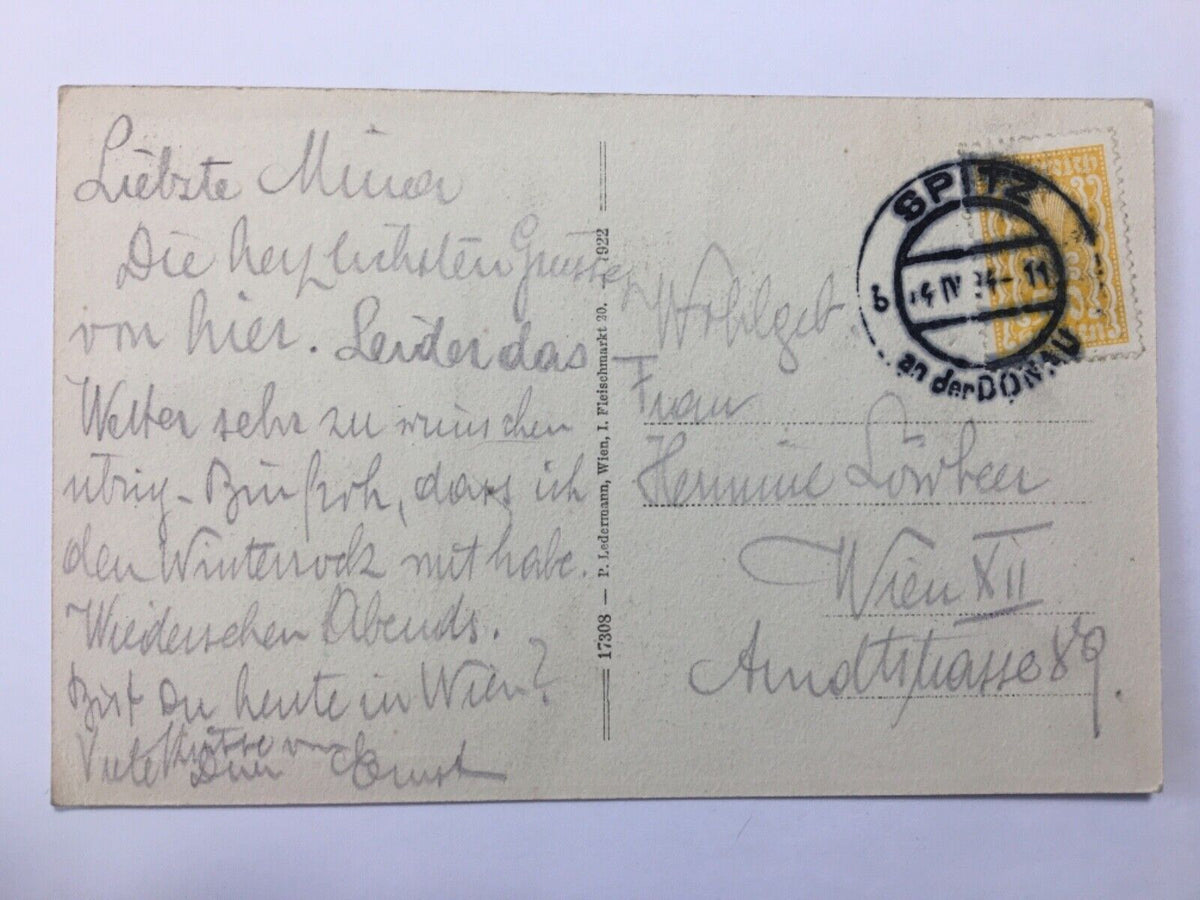 Liebste Mina
Die herzlichsten Grüsse
von hier. Leider das
Wetter sehr zu wünschen
übrig. Bin froh, dass ich
den Winterrock mit habe.
Wiedersehen Abends.
Bist Du heute in Wien?
Viele Küsse von
Dein Ernst
17308 — P. Ledermann, Wien, I. Fleischmarkt 20. 1922
SPITZ
b
IV 24
an der DONAU
Wohlgeb.
Frau
Hermine Löwbeer
Wien XII
Arndtstrasse 89.